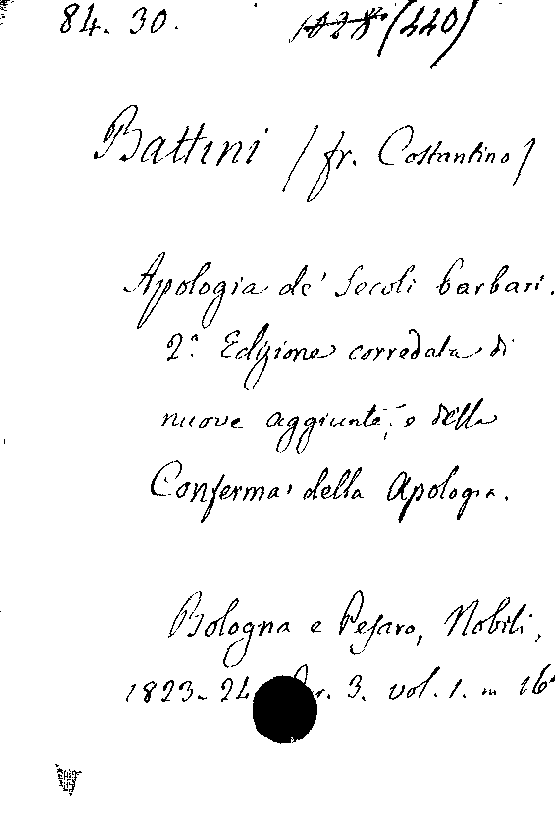 84. 30. 1028 (220)
Battini (fr. Costantino)
Apologia de' secoli barbari.
2ª Edizione corredata di
nuove aggiunte, e della
Conferma della Apologia.
Bologna e Pesaro, Nobili,
1823-24. 3. vol. 1. in 16º